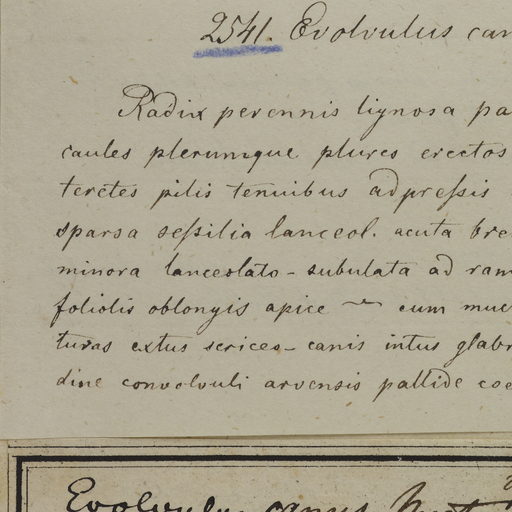 2541. Evolvulus can
Radix perennis lignosa pa
caules plerumque plures erectos
teretes pilis tenuibus adpressis
sparsa sessilia lanceol. acuta bre
minora lanceolato-subulata ad ram
foliolis oblongis apice cum muc
turas extus sericeo-canis intus glabr
dine convolvuli arvensis pallide coe
Evolvulus canus